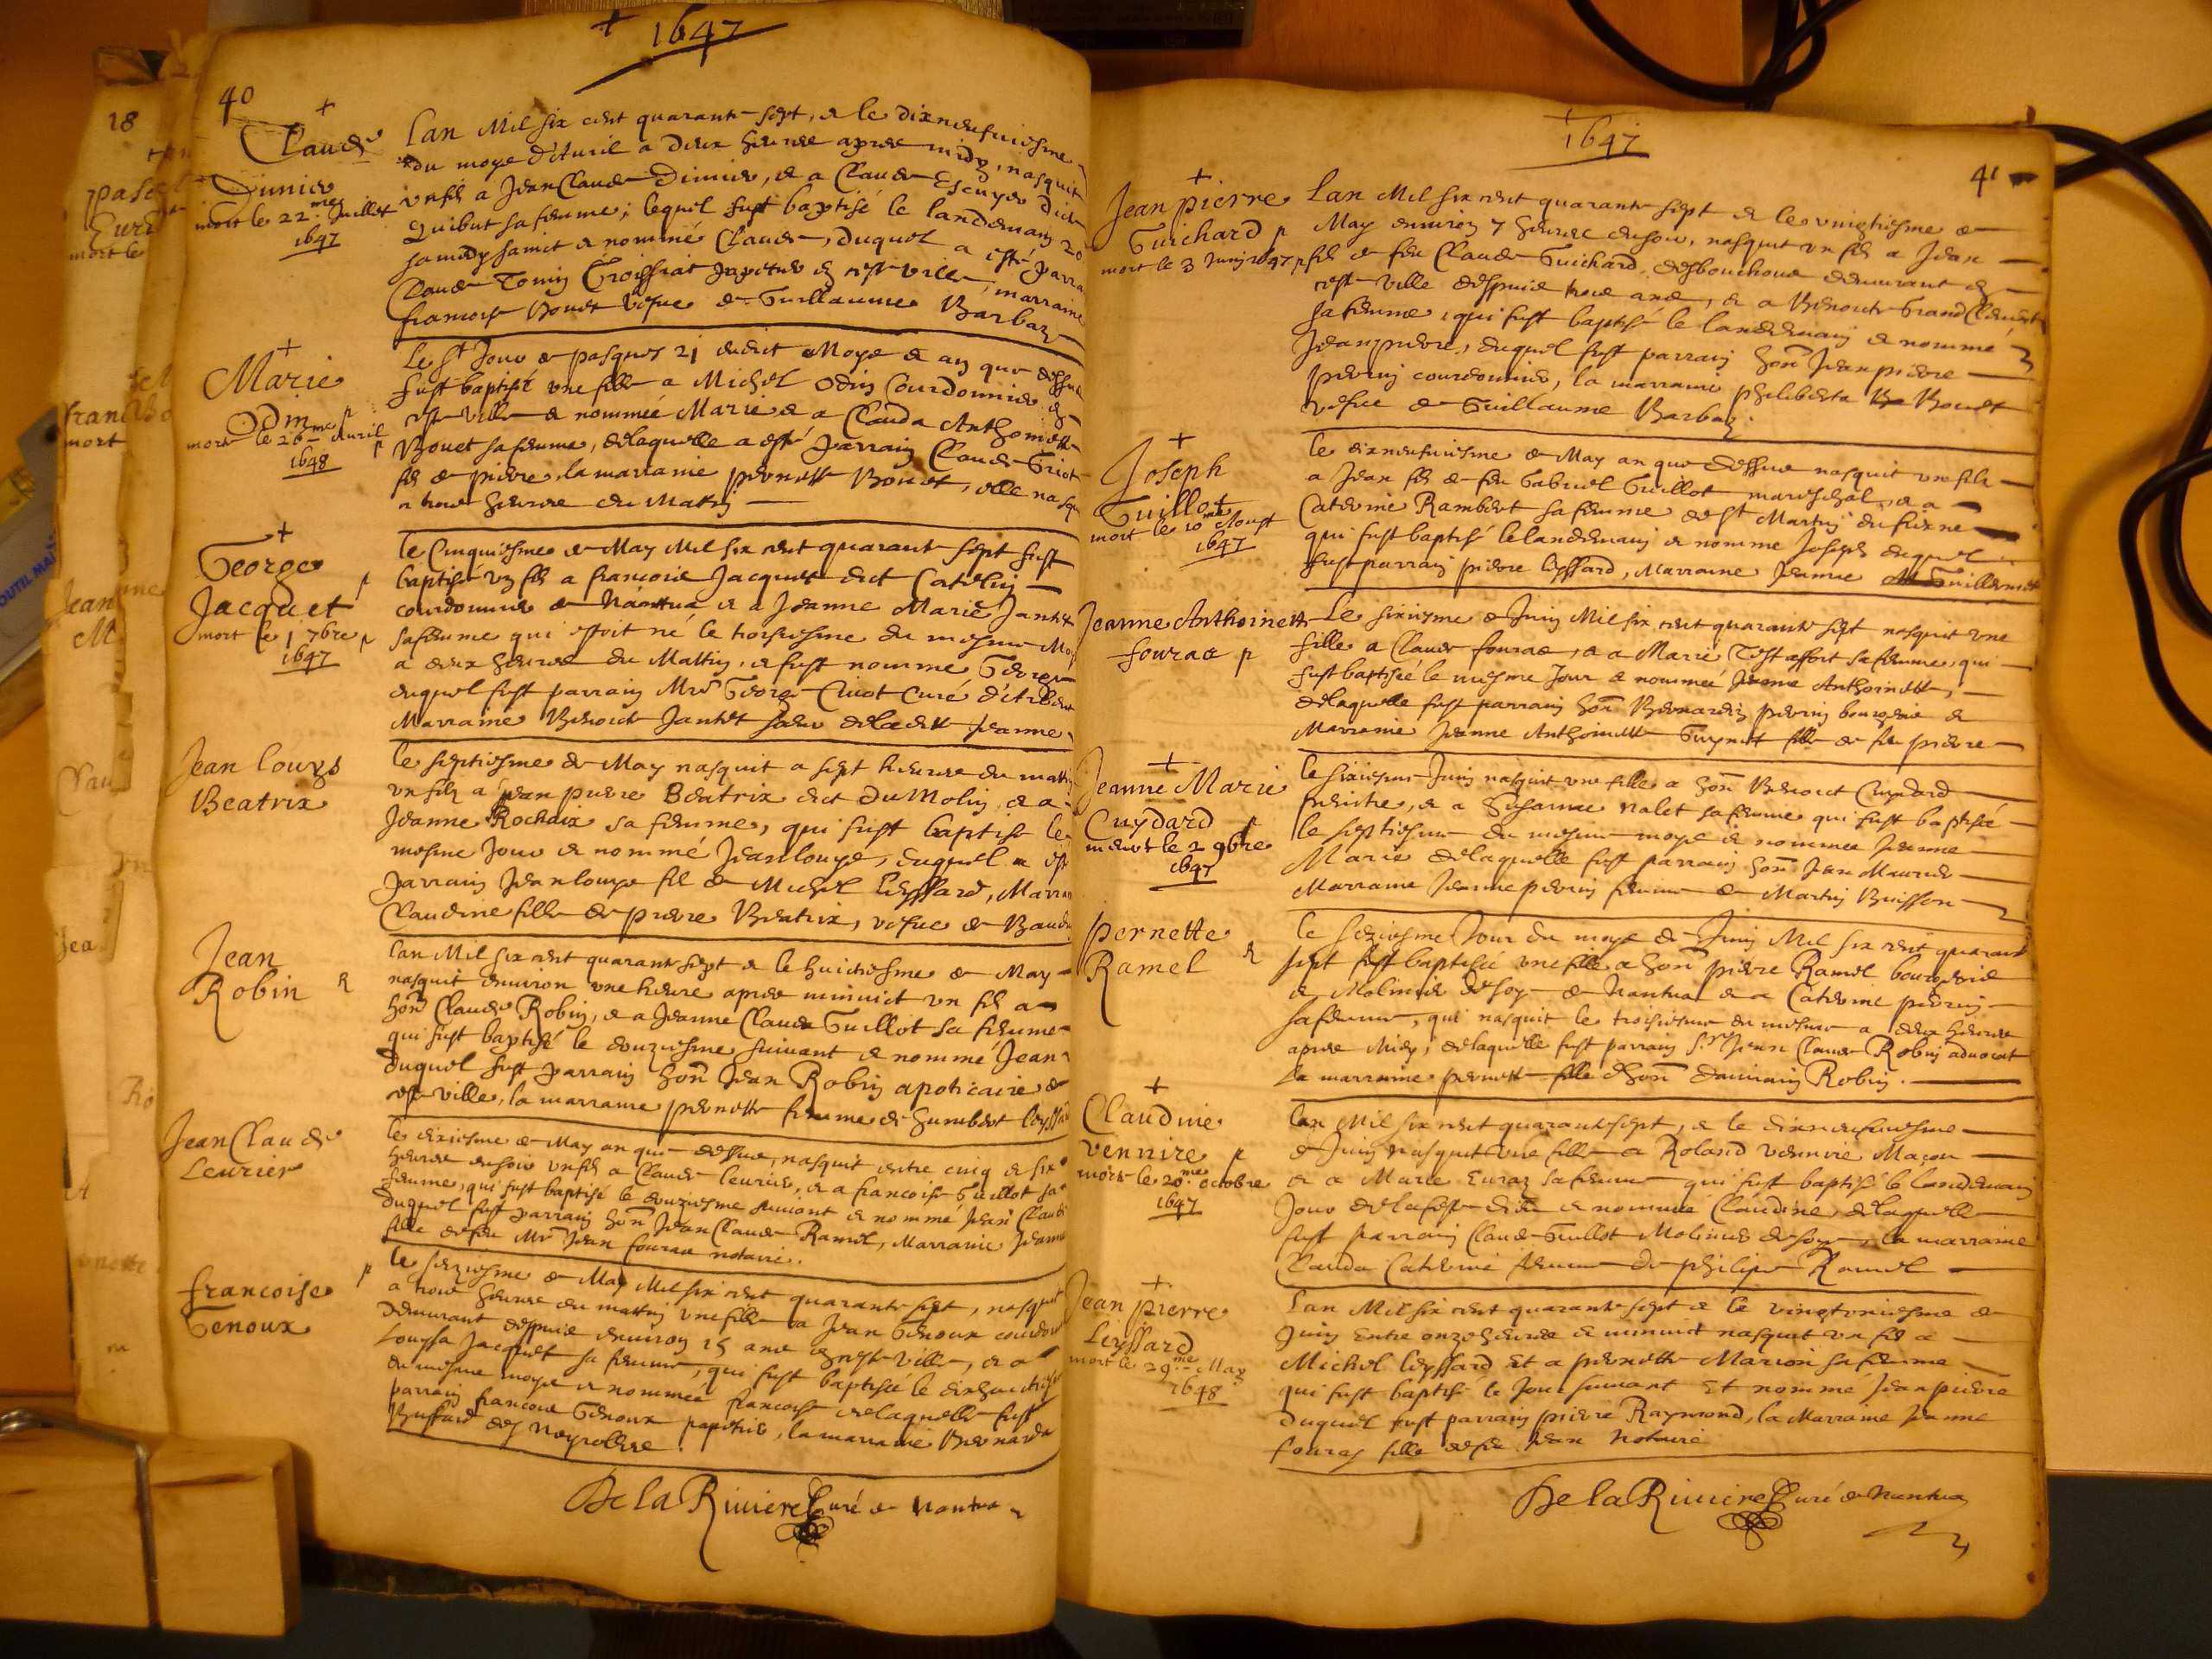 + 1647
40
+
Claude
Dunier
mort le 22me Juillet
1647
Lan Mil six cent quarante sept, & le dixneufuiesme
du moys d'Auril a deux heures apres midy, nasquit
un filz a Jean Claude Dunier, & a Claude Escuyer dict
Quibut sa femme; lequel fust baptisé le landemain 20
samedy sainct & nommé Claude, duquel a esté parra
Claude Tomin Croissiat papetier en ceste ville, marraine
francoise Bouet vefue de Guillaume Barbaz
+
Marie
Odin
mort le 26me Auril
1648
Le St Jour de pasques 21 dudict Moys & an que dessus
fust baptisée une fille a Michel Odin Courdonnier en
ceste ville & nommée Marie & a Clauda Anthoinette
Bouet sa femme, delaquelle a esté parrain Claude Griot
filz de pierre, la marraine pernette Bouet, elle nasqu
a trois heures du Matin
+
George
Jacquet
mort le 1 7bre
1647
le Cinquiesme de May Mil six cent quarante sept fust
baptisé un filz a francois Jacquet dict Catelin
courdonnier de Nantua & a Jeanne Marie Jantet
sa femme qui estoit né le troisiesme du mesme Moys
a deux heures du Mattin, & fust nommé George
duquel fust parrain Mre George Curé
Marraine Benoite Jantet soeur de ladette Jeanne
Jean louys
Beatrix
le septiesme de May nasquit a sept heures du mattin
un filz a Jean pierre Beatrix dict Du Molin, & a
Jeanne Rochaix sa femme, qui fust baptisé le
mesme Jour & nommé Jean louys, duquel a esté
parrain Jean louys filz de Michel Leyssard, Marra
Claudine fille de pierre Beatrix, vefue de Baud
Jean
Robin
lan Mil six cent quarante sept & le huictiesme de May
nasquit enuiron une heure apres minuict un filz a
hon Claude Robin, & a Jeanne Claude Guillot sa femme
qui fust baptisé le douziesme suiuant & nommé Jean
duquel fust parrain hon Jean Robin apoticaire de
ceste ville, la marraine pernette femme de humbert leyssard
Jean Claude
Leurier
le dixiesme de May an que dessus, nasquit entre cinq & six
heures du soir un filz a Claude leurier, & a francoise Guillot sa
femme, qui fust baptisé le douziesme suiuant & nommé Jean Claude
duquel fust parrain hon Jean Claude Ramel, Marraine Jeanne
fille de feu Mre Jean fourax notaire.
francoise
Genoux
le seziesme de May Mil six cent quarante sept, nasquit
a trois heures du mattin une fille a Jean Genoux courdon
demeurant despuis enuiron 15 ans en ceste ville, & a
Louysa Jacquet sa femme, qui fust baptisée le dixhuictiesme
du mesme moys & nommée francoise delaquelle fust
parrain francois Genoux papetier, la marraine Bernarda
Buffard des Neyrolles.
De la Riuiere Curé de Nantua
1647
41
+
Jean pierre
Guichard
mort le 3 Juin 1647
Lan Mil six cent quarante sept & le vingtiesme de
May enuiron 7 heures du soir, nasquit un filz a Jean
filz de feu Claude Guichard, desbouchoux demeurant en
ceste ville despuis trois ans, & a Benoite Grand Clement
sa femme, qui fust baptisé le landemain & nommé
Jean pierre, duquel fust parrain hon Jean pierre
perrin courdonnier, la marraine philiberta Bouet
vefue de Guillaume Barbaz.
+
Joseph
Guillot
mort le 10me Aoust
1647
le dixneufuiesme de May an que dessus nasquit un filz
a Jean filz de feu Gabriel Guillot mareschal, & a
Caterine Rambert sa femme de St Martin du fresne
qui fust baptisé le landemain & nommé Joseph duquel
fust parrain pierre leyssard, Marraine Jeanne Guillermet
Jeanne Anthoinette
fourax
Le sixiesme de Juin Mil six cent quarante sept nasquit une
fille a Claude fourax, & a Marie sa femme, qui
fust baptisée le mesme Jour & nommée Jeanne Anthoinette,
delaquelle fust parrain hon Bernardin perrin bourgeois &
Marraine Jeanne Anthoinette Guynet fille de feu pierre
+
Jeanne Marie
Cuydard
morte le 2 9bre
1647
le sixiesme Juin nasquit une fille a hon Benoict Cuydard
peintre, & a Susanne Nalet sa femme qui fust baptisée
le septiesme du mesme moys & nommée Jeanne
Marie delaquelle fust parrain hon Jean Maurier
Marraine Jeanne perrin femme de Martin Buisson
Pernette
Ramel
le seziesme Jour du moys de Juin Mil six cent quarante
sept fust baptisée une fille a hon pierre Ramel bourgeois
& Molinier de soye de Nantua & a Caterine perrin
sa femme, qui nasquit le troisiesme du mesme a deux heures
apres Midy, delaquelle fust parrain Sr Jean Claude Robin aduocat
La marraine pernette fille d'hon Damian Robin.
+
Claudine
Vennire
morte le 20me octobre
1647
Lan Mil six cent quarante sept, & le dixneufuiesme
de Juin nasquit une fille a Roland Vennire Maçon
& a Marie Euraz sa femme qui fust baptisé le landemain
Jour de la feste dieu & nommée Claudine, delaquelle
fust parrain Claude Guillot Molinier de soye, la marraine
Clauda Caterine femme de philippe Ramel
+
Jean pierre
Leyssard
mort le 29me May
1648
Lan Mil six cent quarante sept & le vingtuniesme de
Juin entre onze heures & minuict nasquit un filz a
Michel leyssard Et a pernette Marion sa femme
qui fust baptisé le Jour suiuant Et nommé Jean pierre
duquel fust parrain pierre Raymond, la Marraine Jeanne
fouray fille de feu Jean Notaire
De la Riuiere Curé de Nantua
18
mort le
mort